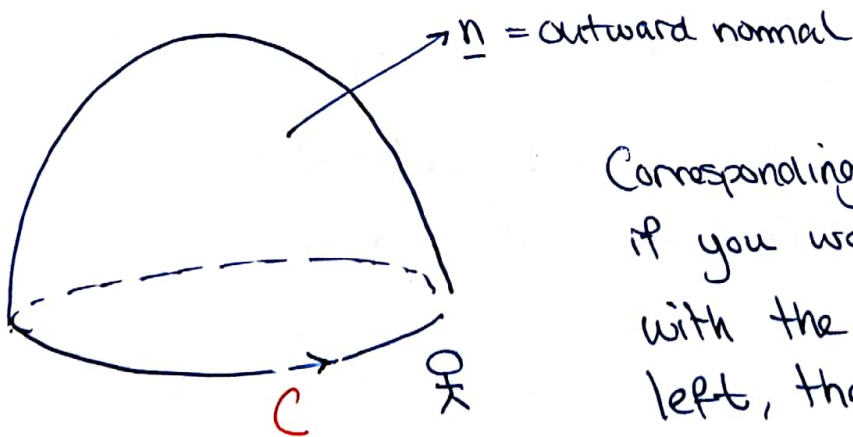 n = outward normal
Corresponding
if you wo
with the
left, tho
C